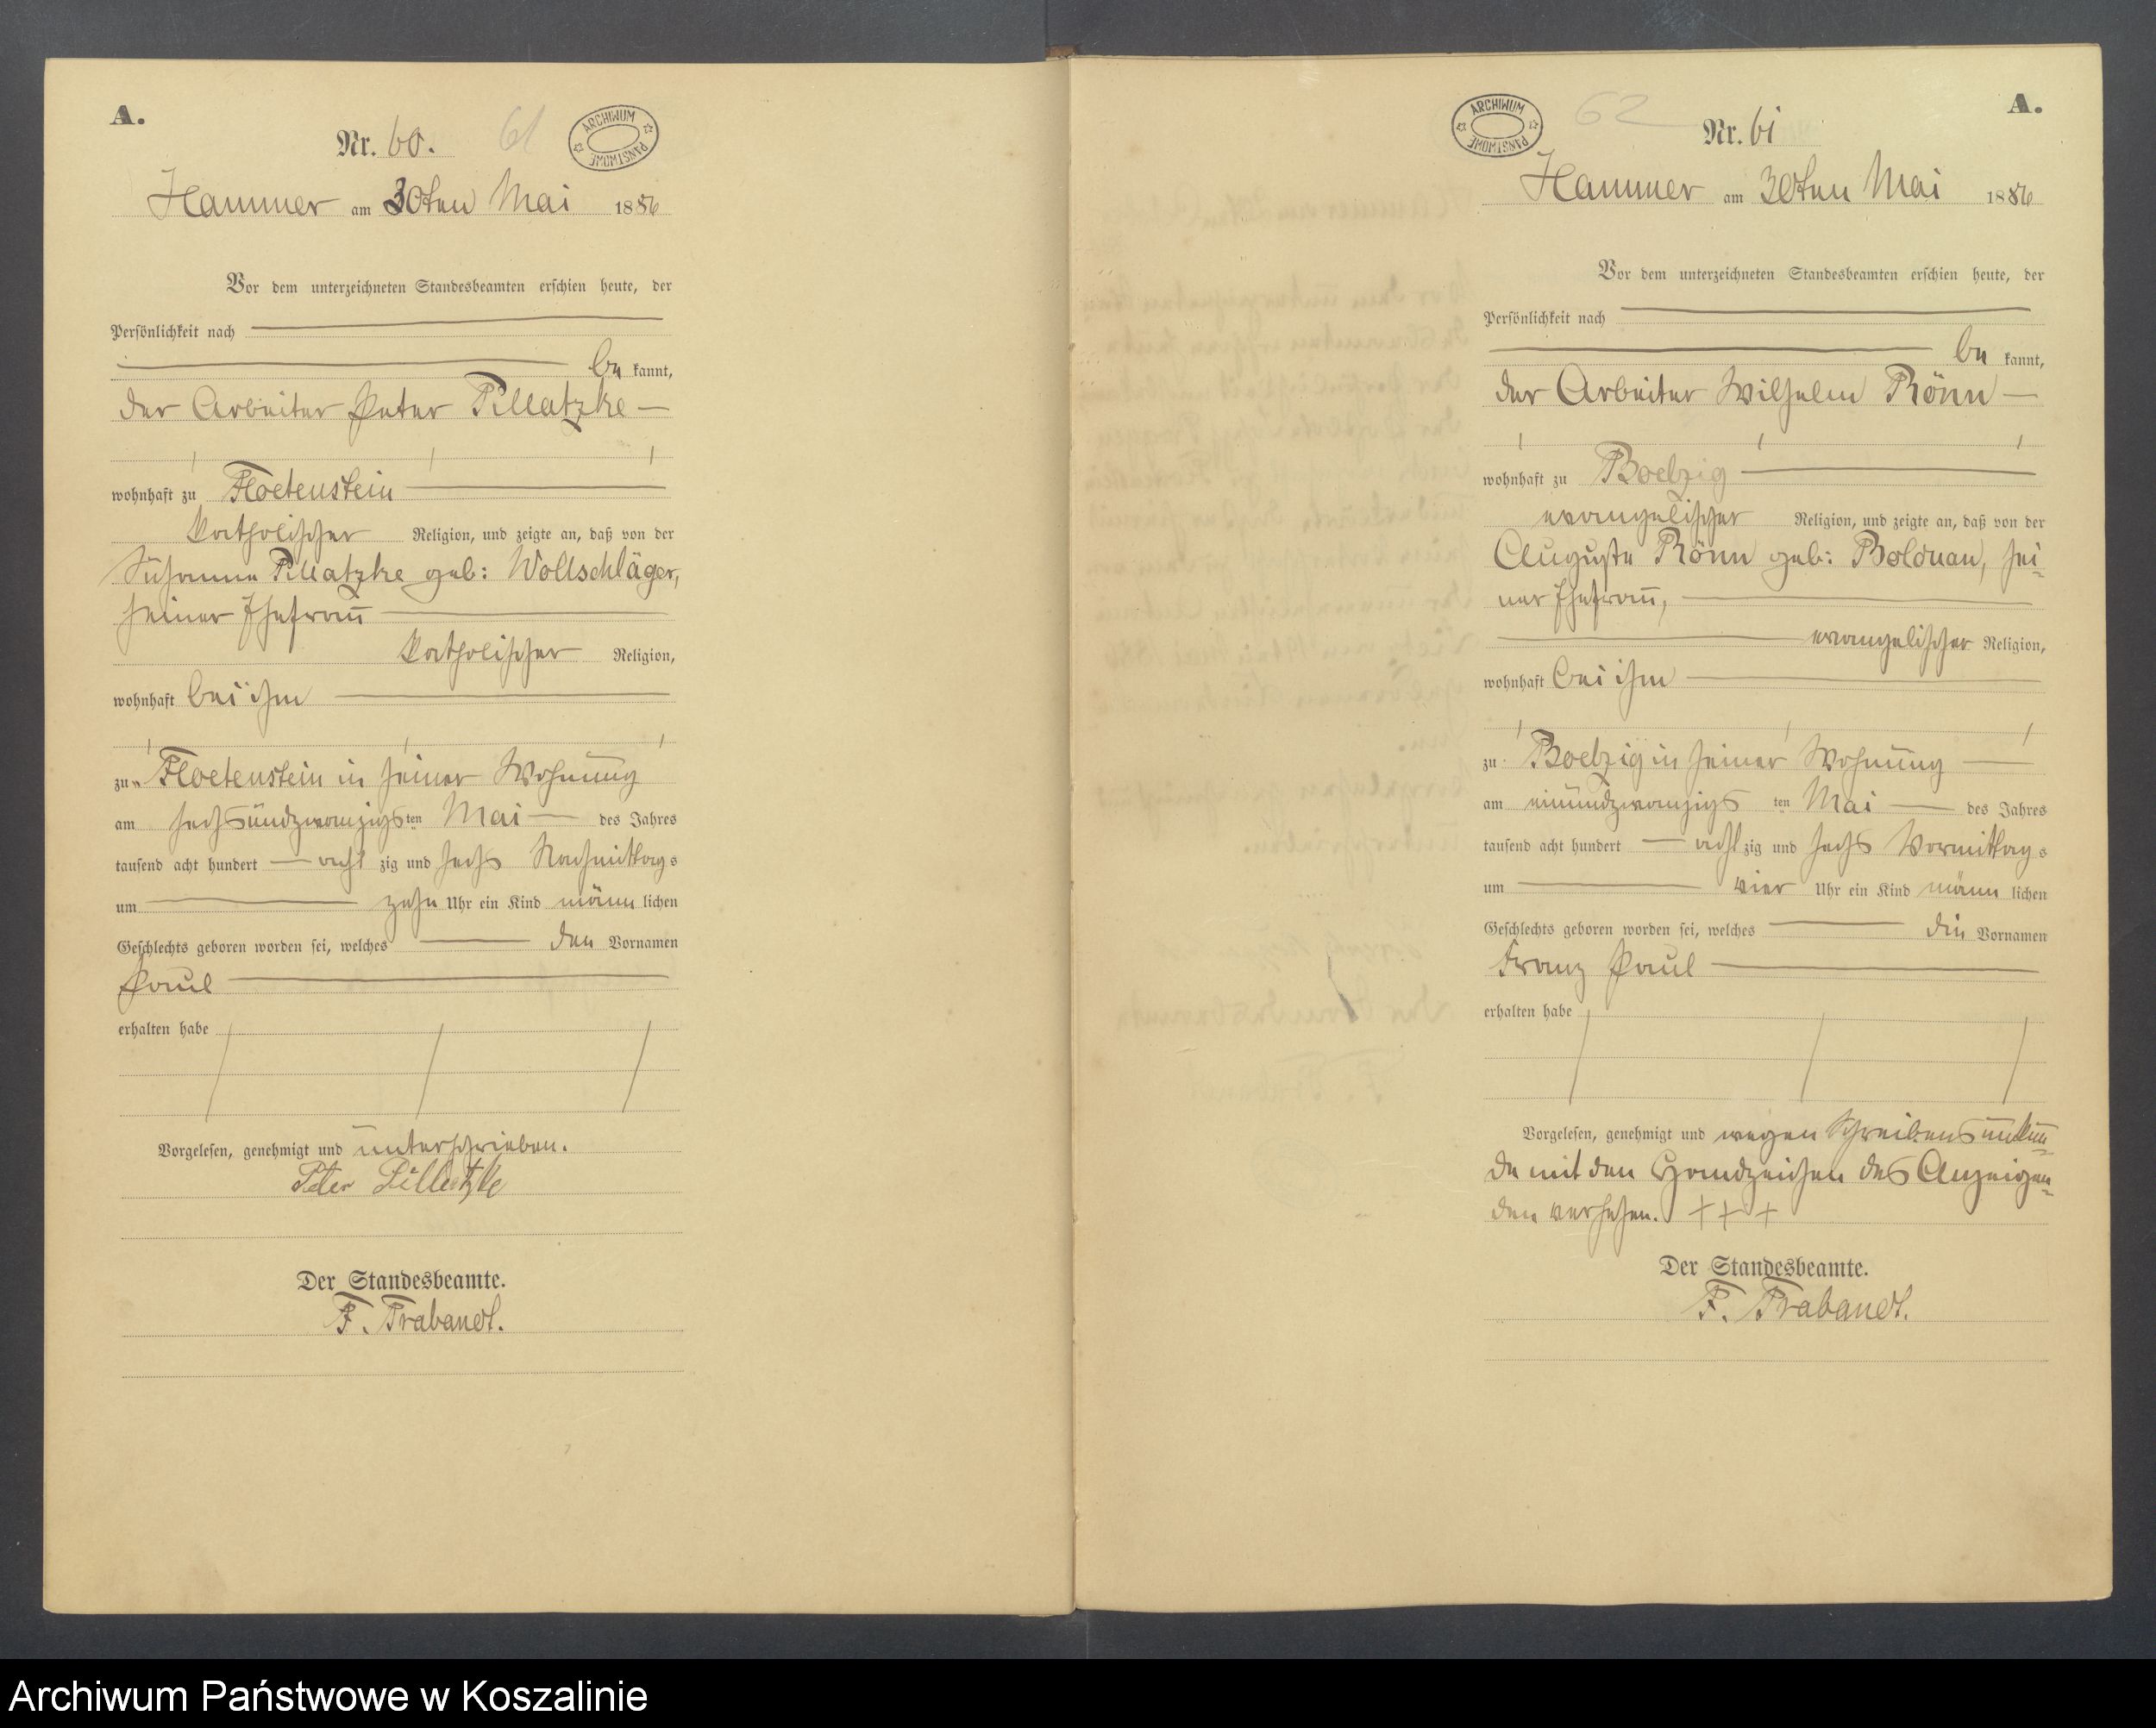 A.
Nr. 60. 61
ARCHIWUM PAŃSTWOWE
Hammer am 30ten Mai 1886
Vor dem unterzeichneten Standesbeamten erschien heute, der
Persönlichkeit nach
be kannt,
der Arbeiter Peter Pillatzke —
wohnhaft zu Floetenstein
katholischer Religion, und zeigte an, daß von der
Susanna Pillatzke geb: Wollschläger,
seiner Ehefrau
katholischer Religion,
wohnhaft bei ihm
zu Floetenstein in seiner Wohnung
am sechsundzwanzigs ten Mai — des Jahres
tausend acht hundert — acht zig und sechs Nachmittags
um zehn Uhr ein Kind männ lichen
Geschlechts geboren worden sei, welches den Vornamen
Paul
erhalten habe
Vorgelesen, genehmigt und unterschrieben.
Peter Pillatzke
Der Standesbeamte.
F. Trabandt.
A.
ARCHIWUM PAŃSTWOWE
62
Nr. 61
Hammer am 30ten Mai 1886
Vor dem unterzeichneten Standesbeamten erschien heute, der
Persönlichkeit nach
be kannt,
der Arbeiter Wilhelm Rönn —
wohnhaft zu Boelzig
evangelischer Religion, und zeigte an, daß von der
Auguste Rönn geb: Bolduan, sei-
ner Ehefrau,
evangelischer Religion,
wohnhaft bei ihm
zu Boelzig in seiner Wohnung
am einundzwanzigs ten Mai — des Jahres
tausend acht hundert — acht zig und sechs Vormittags
um vier Uhr ein Kind männ lichen
Geschlechts geboren worden sei, welches die Vornamen
Franz Paul
erhalten habe
Vorgelesen, genehmigt und wegen Schreibensunkun-
de mit den Handzeichen des Anzeigen-
den versehen. + + +
Der Standesbeamte.
F. Trabandt.
Archiwum Państwowe w Koszalinie